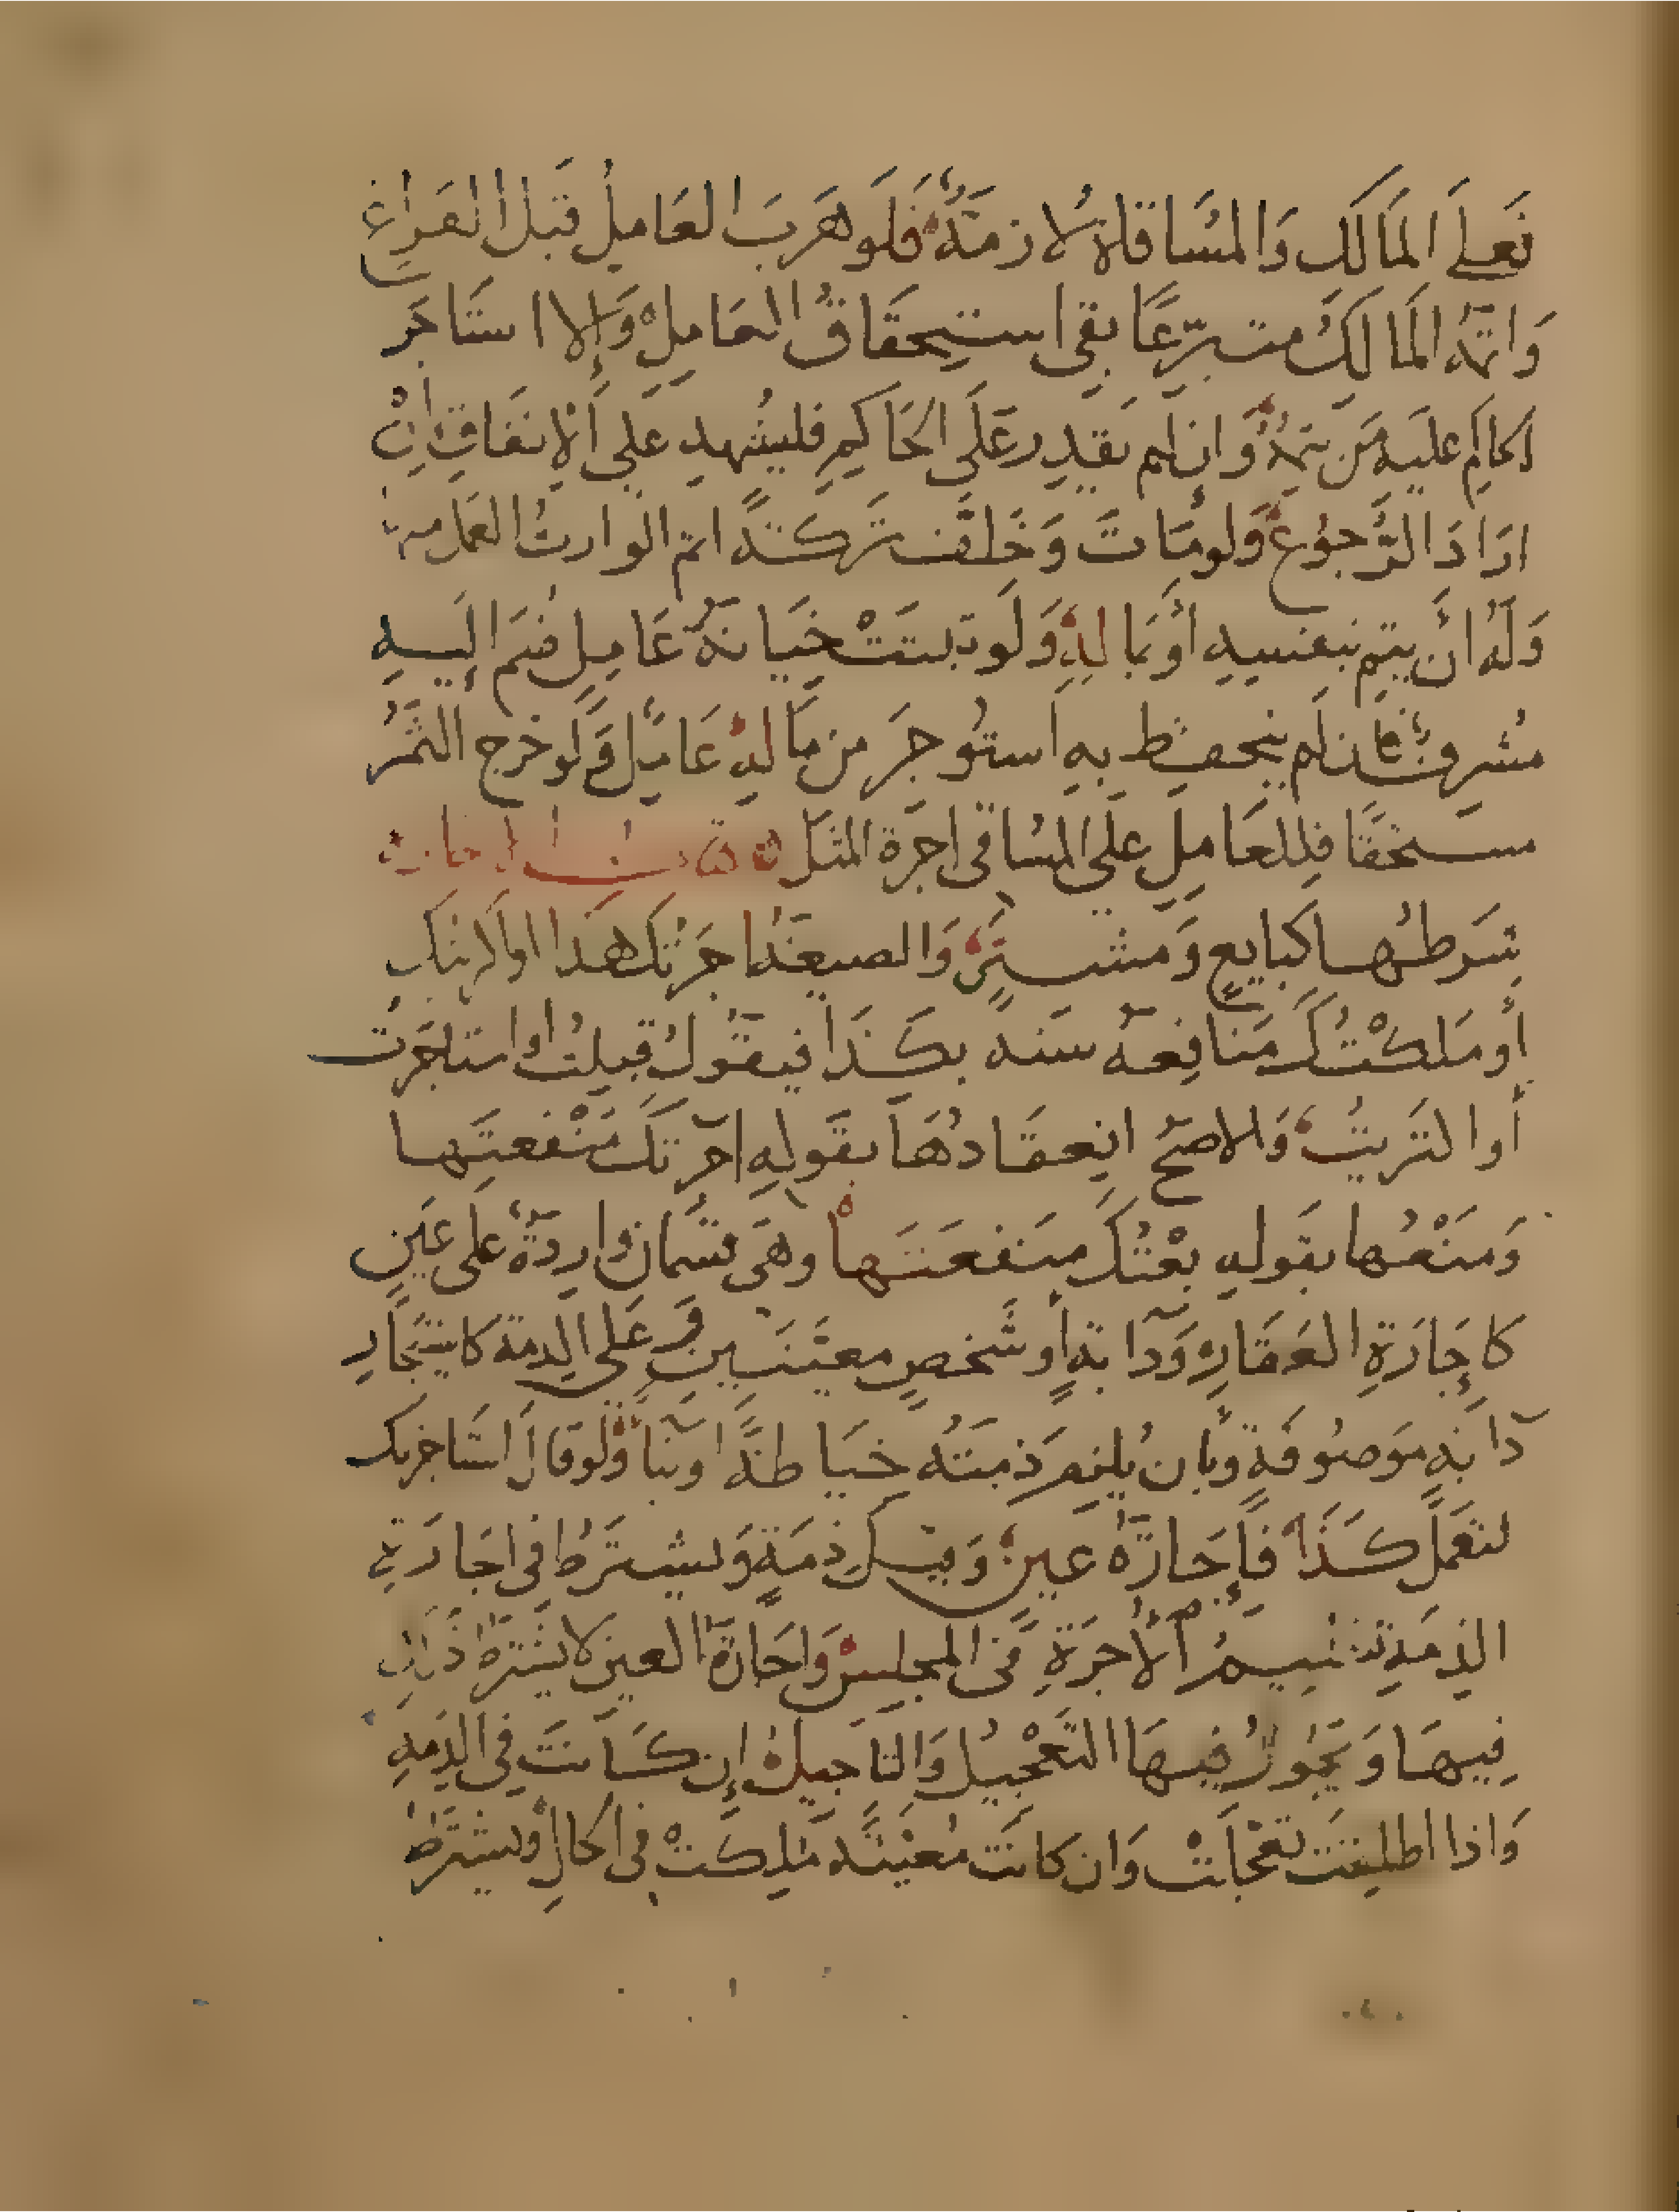 فَعلَى المَالك وَالمسَاقاة لازمَةٌ فَلَو هَرَبَ العَامِلُ قَبلَ الفَراغ
وَاتمّهُ المَالكُ متبرّعًا بقى استحقَاقُ العَامِلِ وَإلا استَاجَر
الحاكم عليه مَن يتمّهُ وَان لم يَقدِر عَلَى الحَاكِمِ فليُشهد على الإنفَاقِ إن
ارَادَ الرُّجوُع وَلو مَاتَ وَخَلَّف تركةً اتمّ الوارثُ العَمل منها
وَلَهُ أن يتم بنفسِهِ أو بمَالِهِ وَلَو ثبتَتْ خيَانةُ عَامِلٍ ضُمَ إليه
مُشرفٌ فان لم ينحفظ بهِ استوُجرَ من مَالهِ عَامِلٌ وَلو خرج الثَّمرُ
مستحقًا فللعَامِلِ علَى المسَاقى اجرَة المثل كتاب الاجارة
شَرطهُا كبايعٍ وَمشترٍ وَالصيغةُ اجرتك هَذا او اكريتك
أو مَلكْتُكَ مَنافِعهُ سَنة بكَذَا فيقُولُ قبلتُ او استاجَرتُ
أو اكتريتُ وَالاصحّ انعقَادهَا بقَولِهِ اجرتك مَنْفعتَها
وَمَنْعُها بقَولِهِ بعْتُكَ منفعَتَها وهىَ قسمَان وَاردةٌ على عَينٍ
كإجَارَةِ العَقَارِ وَدَابّةٍ أو شَخصٍ معيّنَينِ وَعَلى الذمة كاستيجَارِ
دَابّةٍ موَصوُفَةٍ وَبان يُلزمَ ذمتَهُ خيَاطةً او بنَاءً وَلو قال استاجرتك
لتعَملَ كذَا فَإجَارَةُ عينٍ وَقيل ذِمَةٍ وَيشترَطُ فى اجَارَةِ
الذمَةِ تسليمُ الأجرَةِ فى المجلِسِ وَاجَارَةُ العين لا يشترَطُ ذَلِكَ
فِيهَا وَيَجُوزُ فيهَا التَعْجيلُ وَالتاجيلُ إن كَانَت فى الذِمَةِ
وَاذا اطلِقَت تعَجَّلَتْ وَان كانَت مُعَيّنَة مُلِكَتْ فى الحالِ وَيشترَطُ